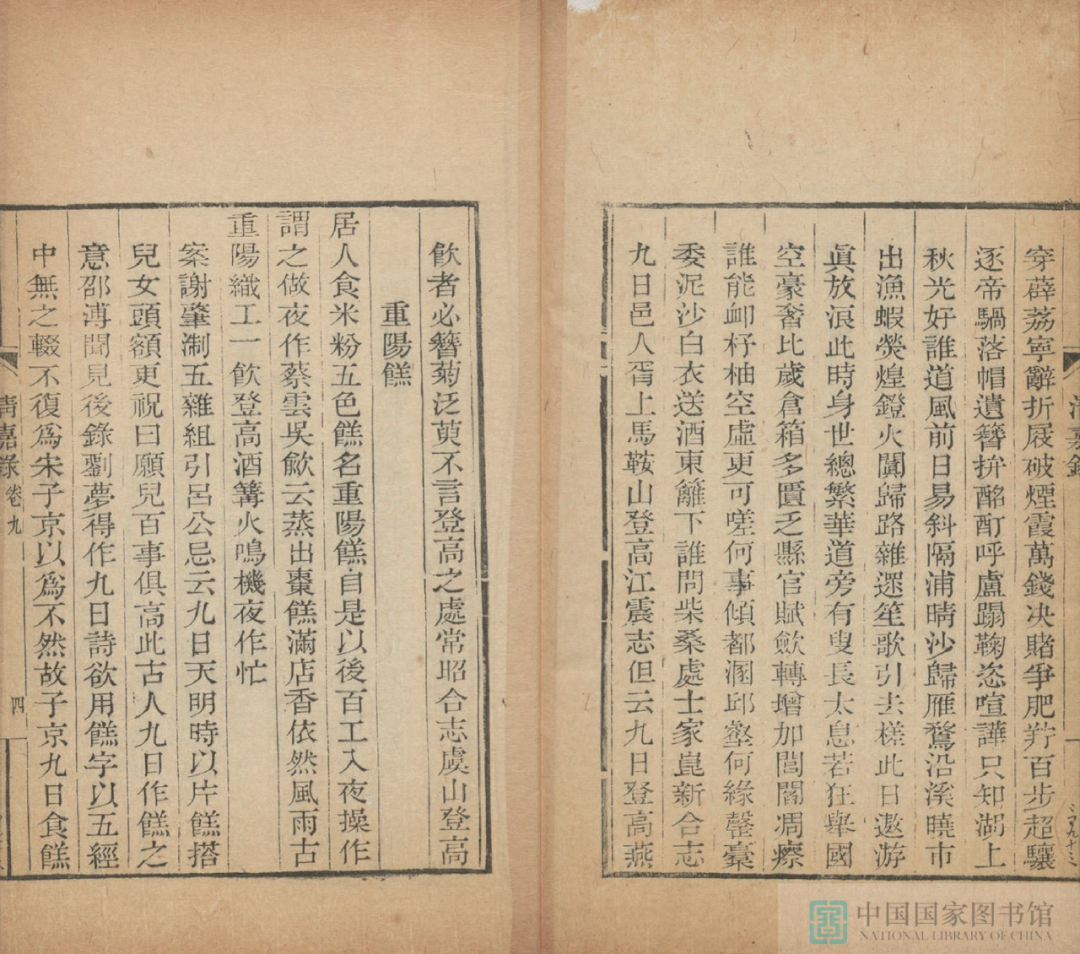 穿薜荔寧辭折屐破煙霞萬錢决賭爭肥羜百步超驤
逐帝騧落帽遺簪拚酩酊呼盧蹋鞠恣喧譁只知湖上
秋光好誰道風前日易斜隔浦晴沙歸雁鶩沿溪曉市
出漁蝦熒煌鐙火闐歸路雜遝笙歌引去槎此日遨游
眞放浪此時身世總繁華道旁有叟長太息若狂舉國
空豪奢比歲倉箱多匱乏縣官賦斂轉增加閭閻凋瘵
誰能卹杼柚空虛更可嗟何事傾都溷邱壑何緣罄橐
委泥沙白衣送酒東籬下誰問柴桑處士家崑新合志
九日邑人胥上馬鞍山登高江震志但云九日登高燕
飲者必簪菊泛萸不言登高之處常昭合志虞山登高
重陽餻
居人食米粉五色餻名重陽餻自是以後百工入夜操作
謂之做夜作蔡雲吳歈云蒸出棗餻滿店香依然風雨古
重陽織工一飲登高酒篝火鳴機夜作忙
案謝肇淛五雜組引呂公忌云九日天明時以片餻搭
兒女頭額更祝曰願兒百事俱高此古人九日作餻之
意邵溥聞見後錄劉夢得作九日詩欲用餻字以五經
中無之輟不復爲宋子京以爲不然故子京九日食餻
清嘉錄 卷九
四
中国国家图书馆
NATIONAL LIBRARY OF CHINA